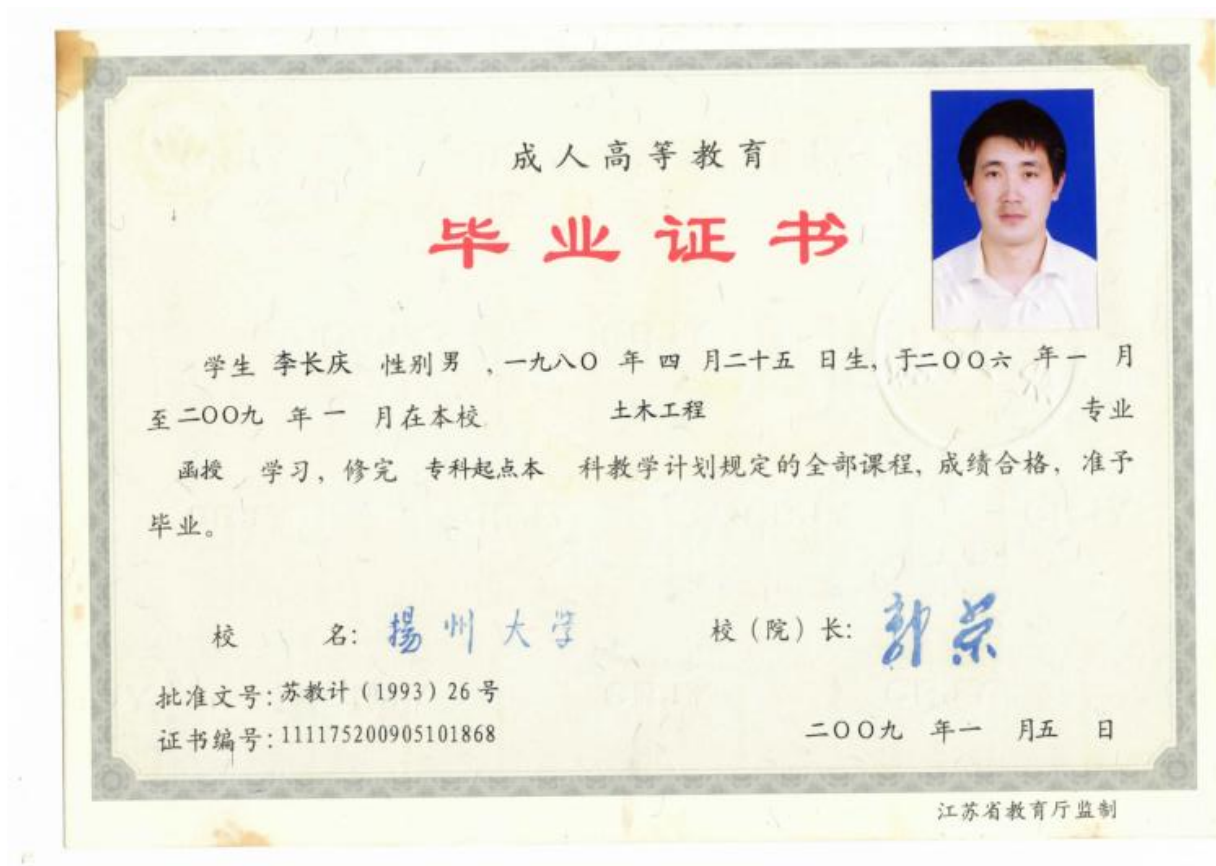 成人高等教育
毕业证书
学生 李长庆 性别 男 ,一九八〇 年 四 月二十五 日生,于二〇〇六 年一 月
至二〇〇九 年 一 月在本校 土木工程 专业
函授 学习,修完 专科起点本 科教学计划规定的全部课程,成绩合格,准予
毕业。
校 名: 揚州大学 校(院)长: 郭荣
批准文号:苏教计(1993)26号
证书编号:111175200905101868
二〇〇九 年一 月五 日
江苏省教育厅监制